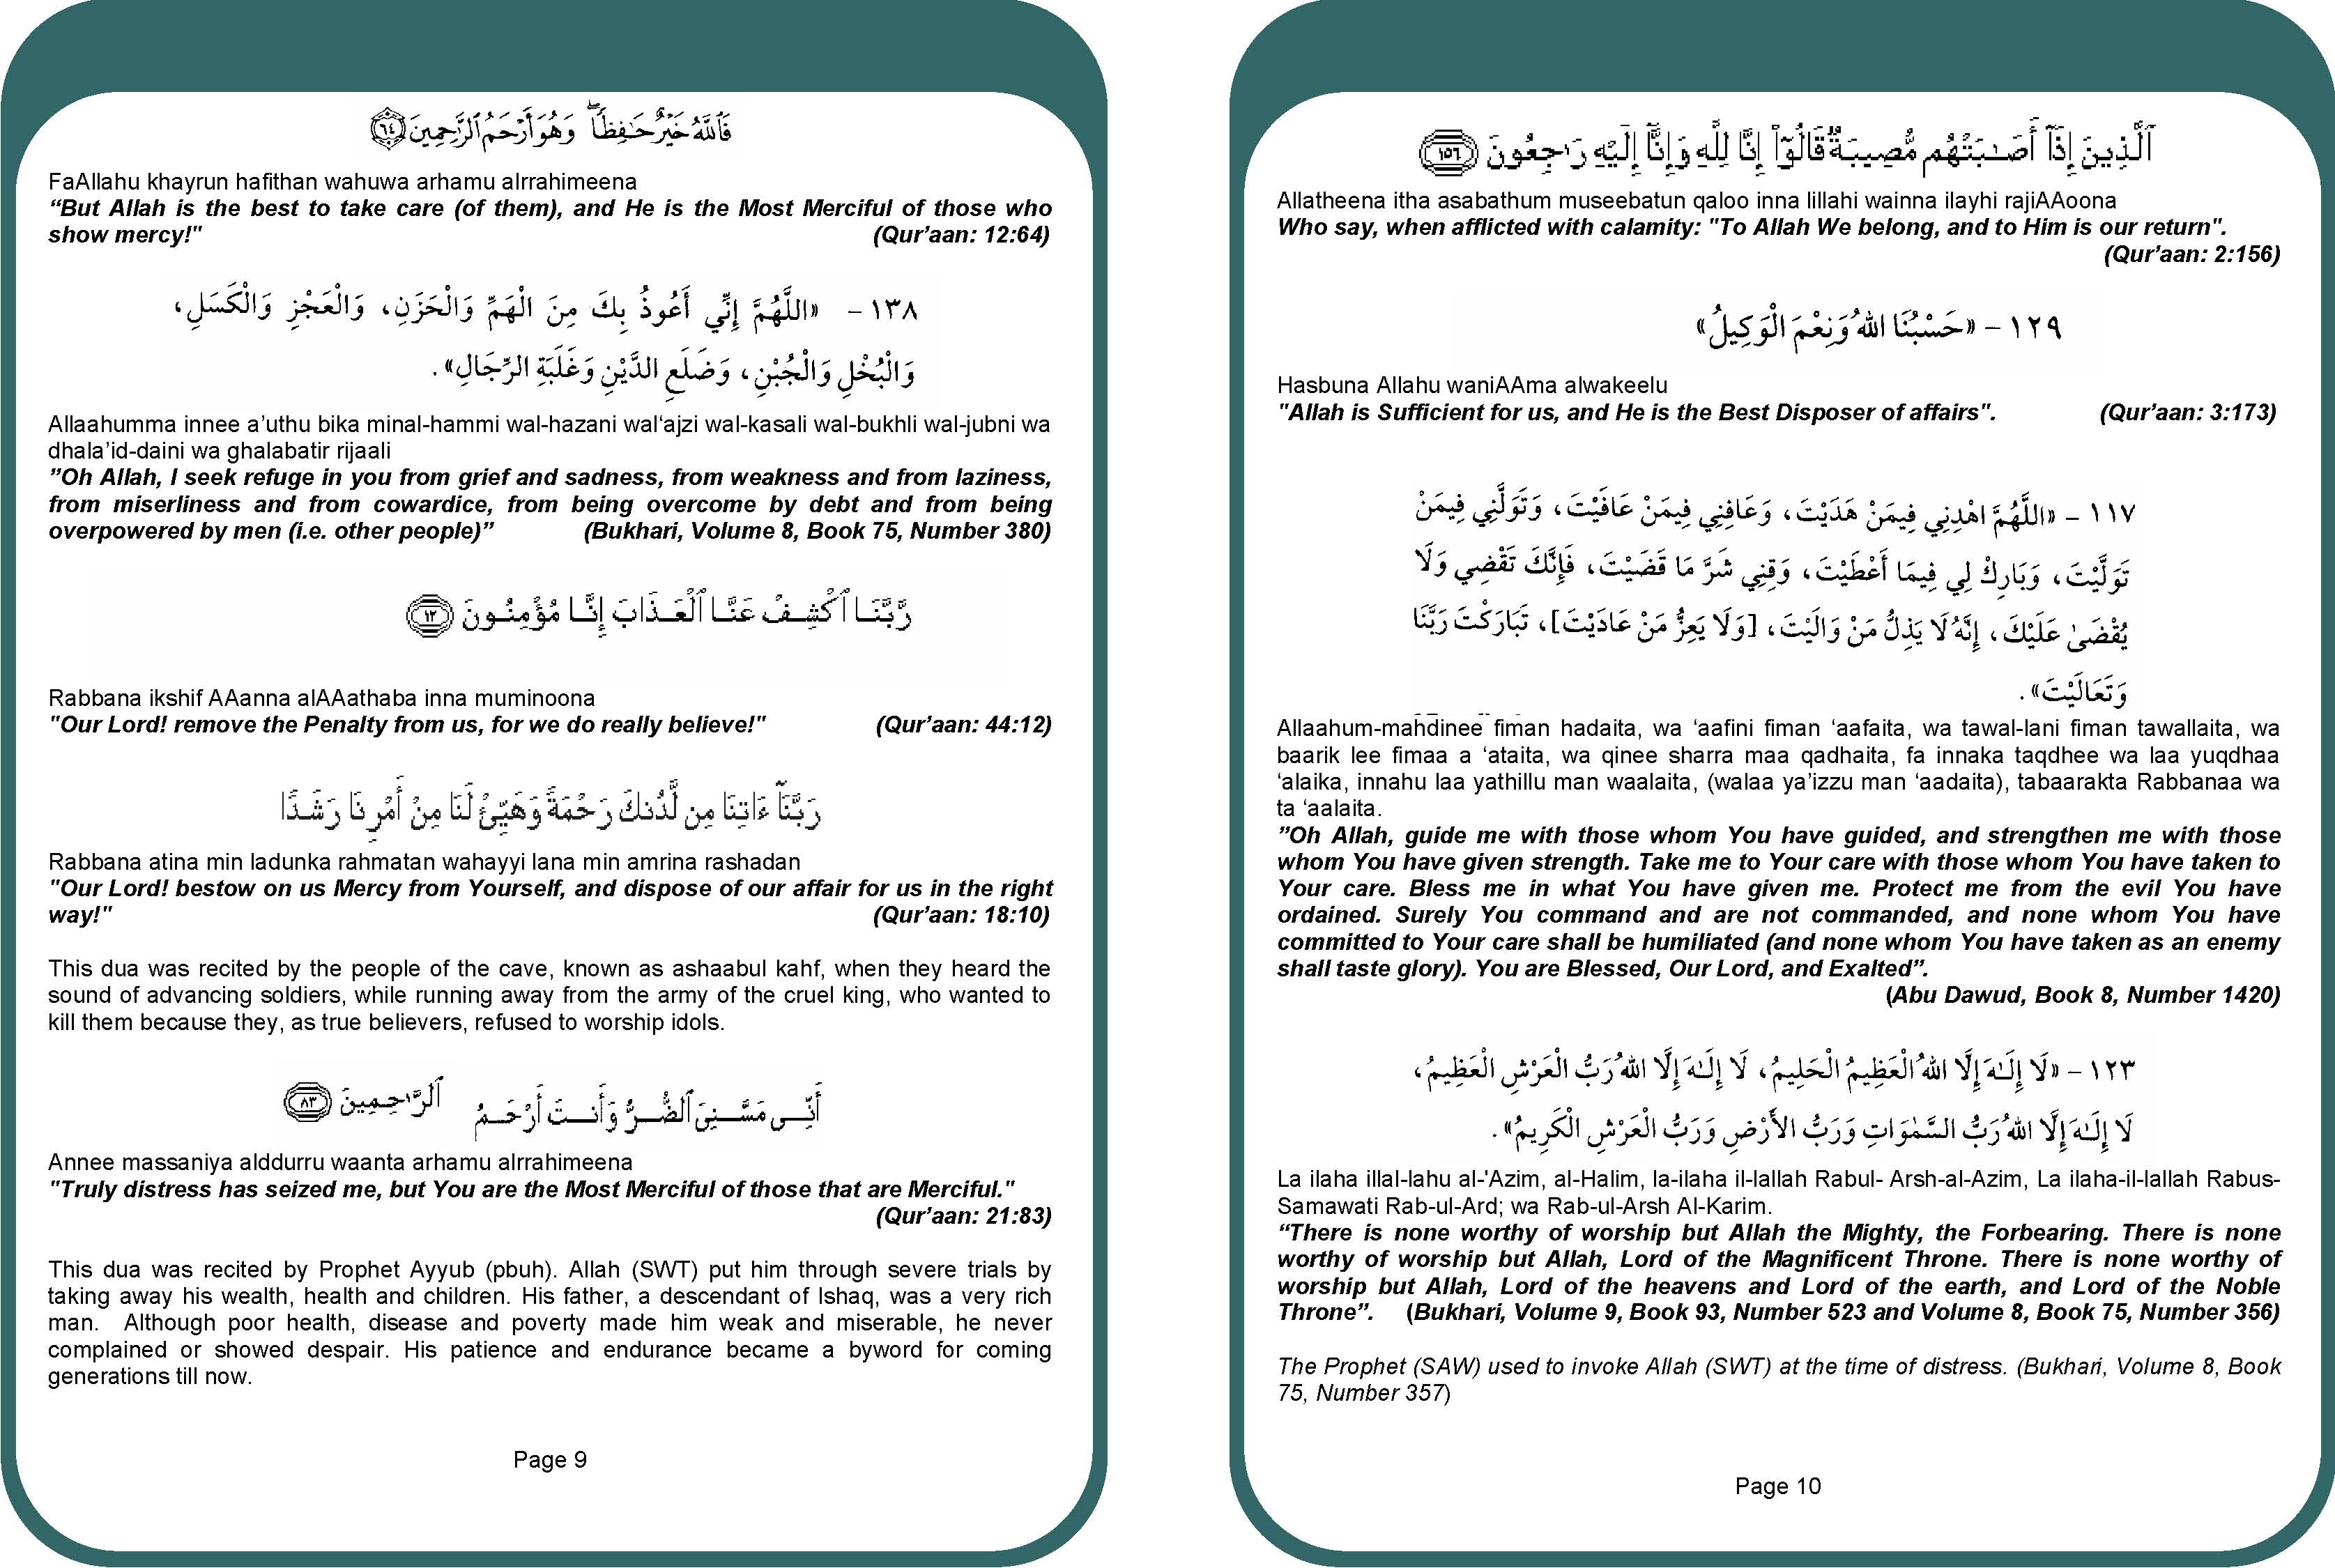 فَٱللَّهُ خَيْرٌ حَـٰفِظًا ۖ وَهُوَ أَرْحَمُ ٱلرَّٰحِمِينَ ٦٤
FaAllahu khayrun hafithan wahuwa arhamu alrrahimeena
“But Allah is the best to take care (of them), and He is the Most Merciful of those who
show mercy!" (Qur’aan: 12:64)
١٣٨ – «اللَّهُمَّ إِنِّي أَعُوذُ بِكَ مِنَ الْهَمِّ وَالْحَزَنِ، وَالْعَجْزِ وَالْكَسَلِ،
وَالْبُخْلِ وَالْجُبْنِ، وَضَلَعِ الدَّيْنِ وَغَلَبَةِ الرِّجَالِ».
Allaahumma innee a’uthu bika minal-hammi wal-hazani wal‘ajzi wal-kasali wal-bukhli wal-jubni wa
dhala’id-daini wa ghalabatir rijaali
”Oh Allah, I seek refuge in you from grief and sadness, from weakness and from laziness,
from miserliness and from cowardice, from being overcome by debt and from being
overpowered by men (i.e. other people)” (Bukhari, Volume 8, Book 75, Number 380)
رَّبَّنَا ٱكْشِفْ عَنَّا ٱلْعَذَابَ إِنَّا مُؤْمِنُونَ ١٢
Rabbana ikshif AAanna alAAathaba inna muminoona
"Our Lord! remove the Penalty from us, for we do really believe!" (Qur’aan: 44:12)
رَبَّنَآ ءَاتِنَا مِن لَّدُنكَ رَحْمَةً وَهَيِّئْ لَنَا مِنْ أَمْرِنَا رَشَدًا
Rabbana atina min ladunka rahmatan wahayyi lana min amrina rashadan
"Our Lord! bestow on us Mercy from Yourself, and dispose of our affair for us in the right
way!" (Qur’aan: 18:10)
This dua was recited by the people of the cave, known as ashaabul kahf, when they heard the
sound of advancing soldiers, while running away from the army of the cruel king, who wanted to
kill them because they, as true believers, refused to worship idols.
أَنِّى مَسَّنِىَ ٱلضُّرُّ وَأَنتَ أَرْحَمُ ٱلرَّٰحِمِينَ ٨٣
Annee massaniya alddurru waanta arhamu alrrahimeena
"Truly distress has seized me, but You are the Most Merciful of those that are Merciful."
(Qur’aan: 21:83)
This dua was recited by Prophet Ayyub (pbuh). Allah (SWT) put him through severe trials by
taking away his wealth, health and children. His father, a descendant of Ishaq, was a very rich
man. Although poor health, disease and poverty made him weak and miserable, he never
complained or showed despair. His patience and endurance became a byword for coming
generations till now.
Page 9
ٱلَّذِينَ إِذَآ أَصَـٰبَتْهُم مُّصِيبَةٌ قَالُوٓا۟ إِنَّا لِلَّهِ وَإِنَّآ إِلَيْهِ رَٰجِعُونَ ١٥٦
Allatheena itha asabathum museebatun qaloo inna lillahi wainna ilayhi rajiAAoona
Who say, when afflicted with calamity: "To Allah We belong, and to Him is our return".
(Qur’aan: 2:156)
١٢٩ – «حَسْبُنَا اللهُ وَنِعْمَ الْوَكِيلُ»
Hasbuna Allahu waniAAma alwakeelu
"Allah is Sufficient for us, and He is the Best Disposer of affairs". (Qur’aan: 3:173)
١١٧ – «اللَّهُمَّ اهْدِنِي فِيمَنْ هَدَيْتَ، وَعَافِنِي فِيمَنْ عَافَيْتَ، وَتَوَلَّنِي فِيمَنْ
تَوَلَّيْتَ، وَبَارِكْ لِي فِيمَا أَعْطَيْتَ، وَقِنِي شَرَّ مَا قَضَيْتَ، فَإِنَّكَ تَقْضِي وَلَا
يُقْضَىٰ عَلَيْكَ، إِنَّهُ لَا يَذِلُّ مَنْ وَالَيْتَ، [وَلَا يَعِزُّ مَنْ عَادَيْتَ]، تَبَارَكْتَ رَبَّنَا
وَتَعَالَيْتَ».
Allaahum-mahdinee fiman hadaita, wa ‘aafini fiman ‘aafaita, wa tawal-lani fiman tawallaita, wa
baarik lee fimaa a ‘ataita, wa qinee sharra maa qadhaita, fa innaka taqdhee wa laa yuqdhaa
‘alaika, innahu laa yathillu man waalaita, (walaa ya’izzu man ‘aadaita), tabaarakta Rabbanaa wa
ta ‘aalaita.
”Oh Allah, guide me with those whom You have guided, and strengthen me with those
whom You have given strength. Take me to Your care with those whom You have taken to
Your care. Bless me in what You have given me. Protect me from the evil You have
ordained. Surely You command and are not commanded, and none whom You have
committed to Your care shall be humiliated (and none whom You have taken as an enemy
shall taste glory). You are Blessed, Our Lord, and Exalted”.
(Abu Dawud, Book 8, Number 1420)
١٢٣ – «لَا إِلَـٰهَ إِلَّا اللهُ الْعَظِيمُ الْحَلِيمُ، لَا إِلَـٰهَ إِلَّا اللهُ رَبُّ الْعَرْشِ الْعَظِيمُ،
لَا إِلَـٰهَ إِلَّا اللهُ رَبُّ السَّمٰوَاتِ وَرَبُّ الأَرْضِ وَرَبُّ الْعَرْشِ الْكَرِيمُ».
La ilaha illal-lahu al-'Azim, al-Halim, la-ilaha il-lallah Rabul- Arsh-al-Azim, La ilaha-il-lallah Rabus-
Samawati Rab-ul-Ard; wa Rab-ul-Arsh Al-Karim.
“There is none worthy of worship but Allah the Mighty, the Forbearing. There is none
worthy of worship but Allah, Lord of the Magnificent Throne. There is none worthy of
worship but Allah, Lord of the heavens and Lord of the earth, and Lord of the Noble
Throne”. (Bukhari, Volume 9, Book 93, Number 523 and Volume 8, Book 75, Number 356)
The Prophet (SAW) used to invoke Allah (SWT) at the time of distress. (Bukhari, Volume 8, Book
75, Number 357)
Page 10